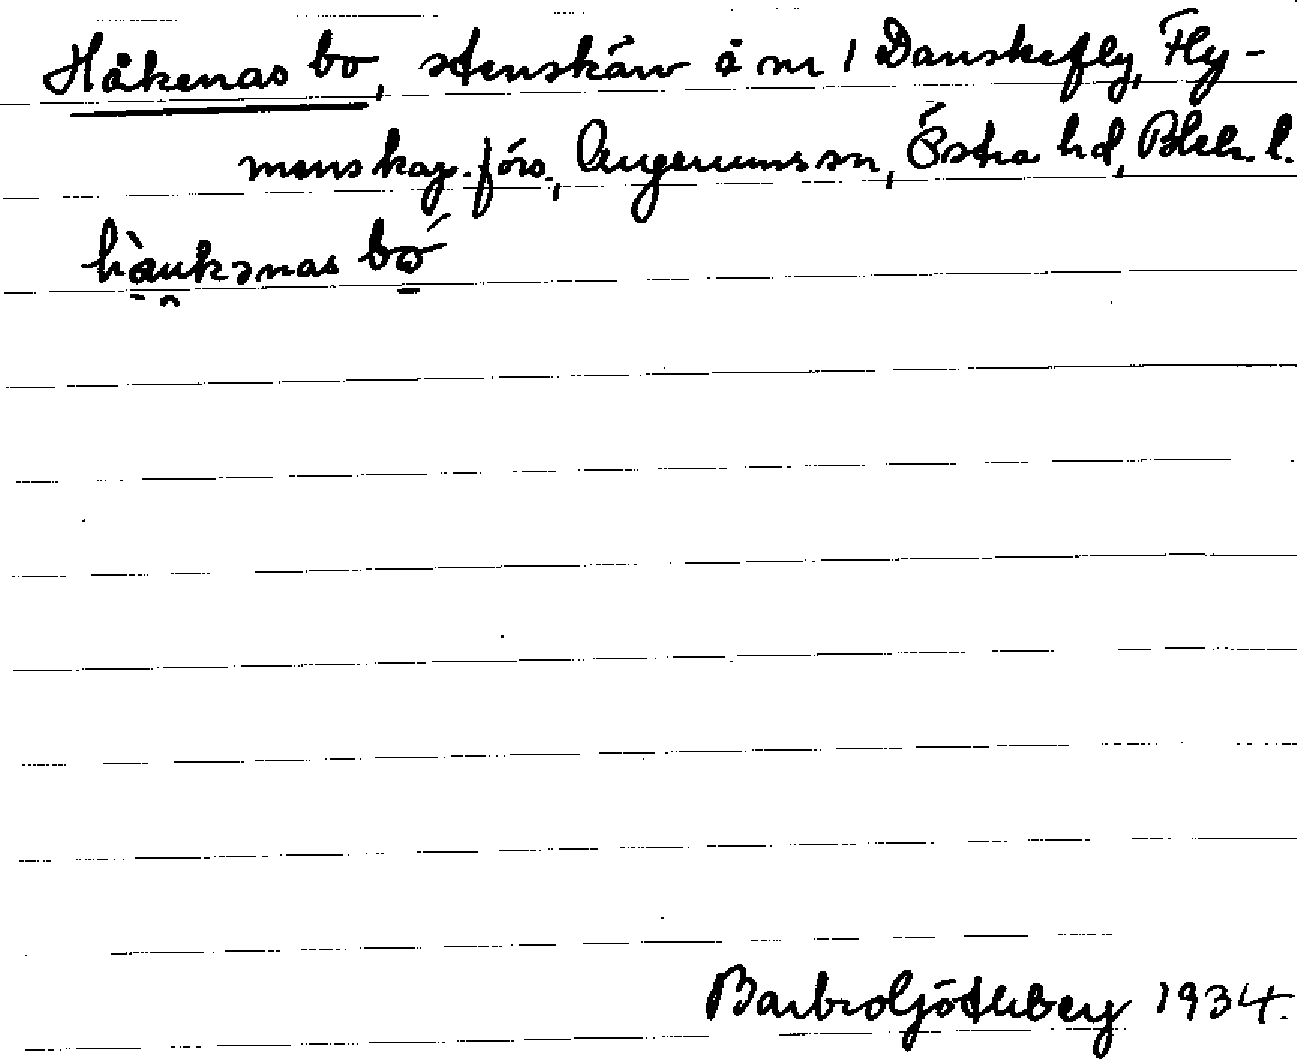 Håkenas bo, stenskär å nr 1 Danskefly, Fly-
menskag. förs., Augerums sn, Östra hd, Blek. l.
hàukənas bó
Barbro Götlebey 1934.